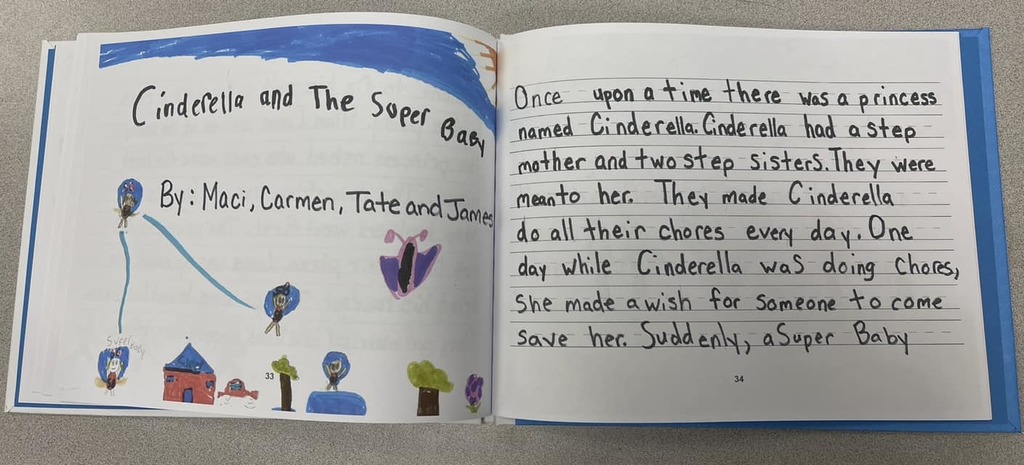 Cinderella and The Super Baby
By: Maci, Carmen, Tate and James
Superbaby
33
Once upon a time there was a princess
named Cinderella. Cinderella had a step
mother and two step sisters. They were
mean to her. They made Cinderella
do all their chores every day. One
day while Cinderella was doing chores,
she made a wish for someone to come
save her. Suddenly, a Super Baby
34